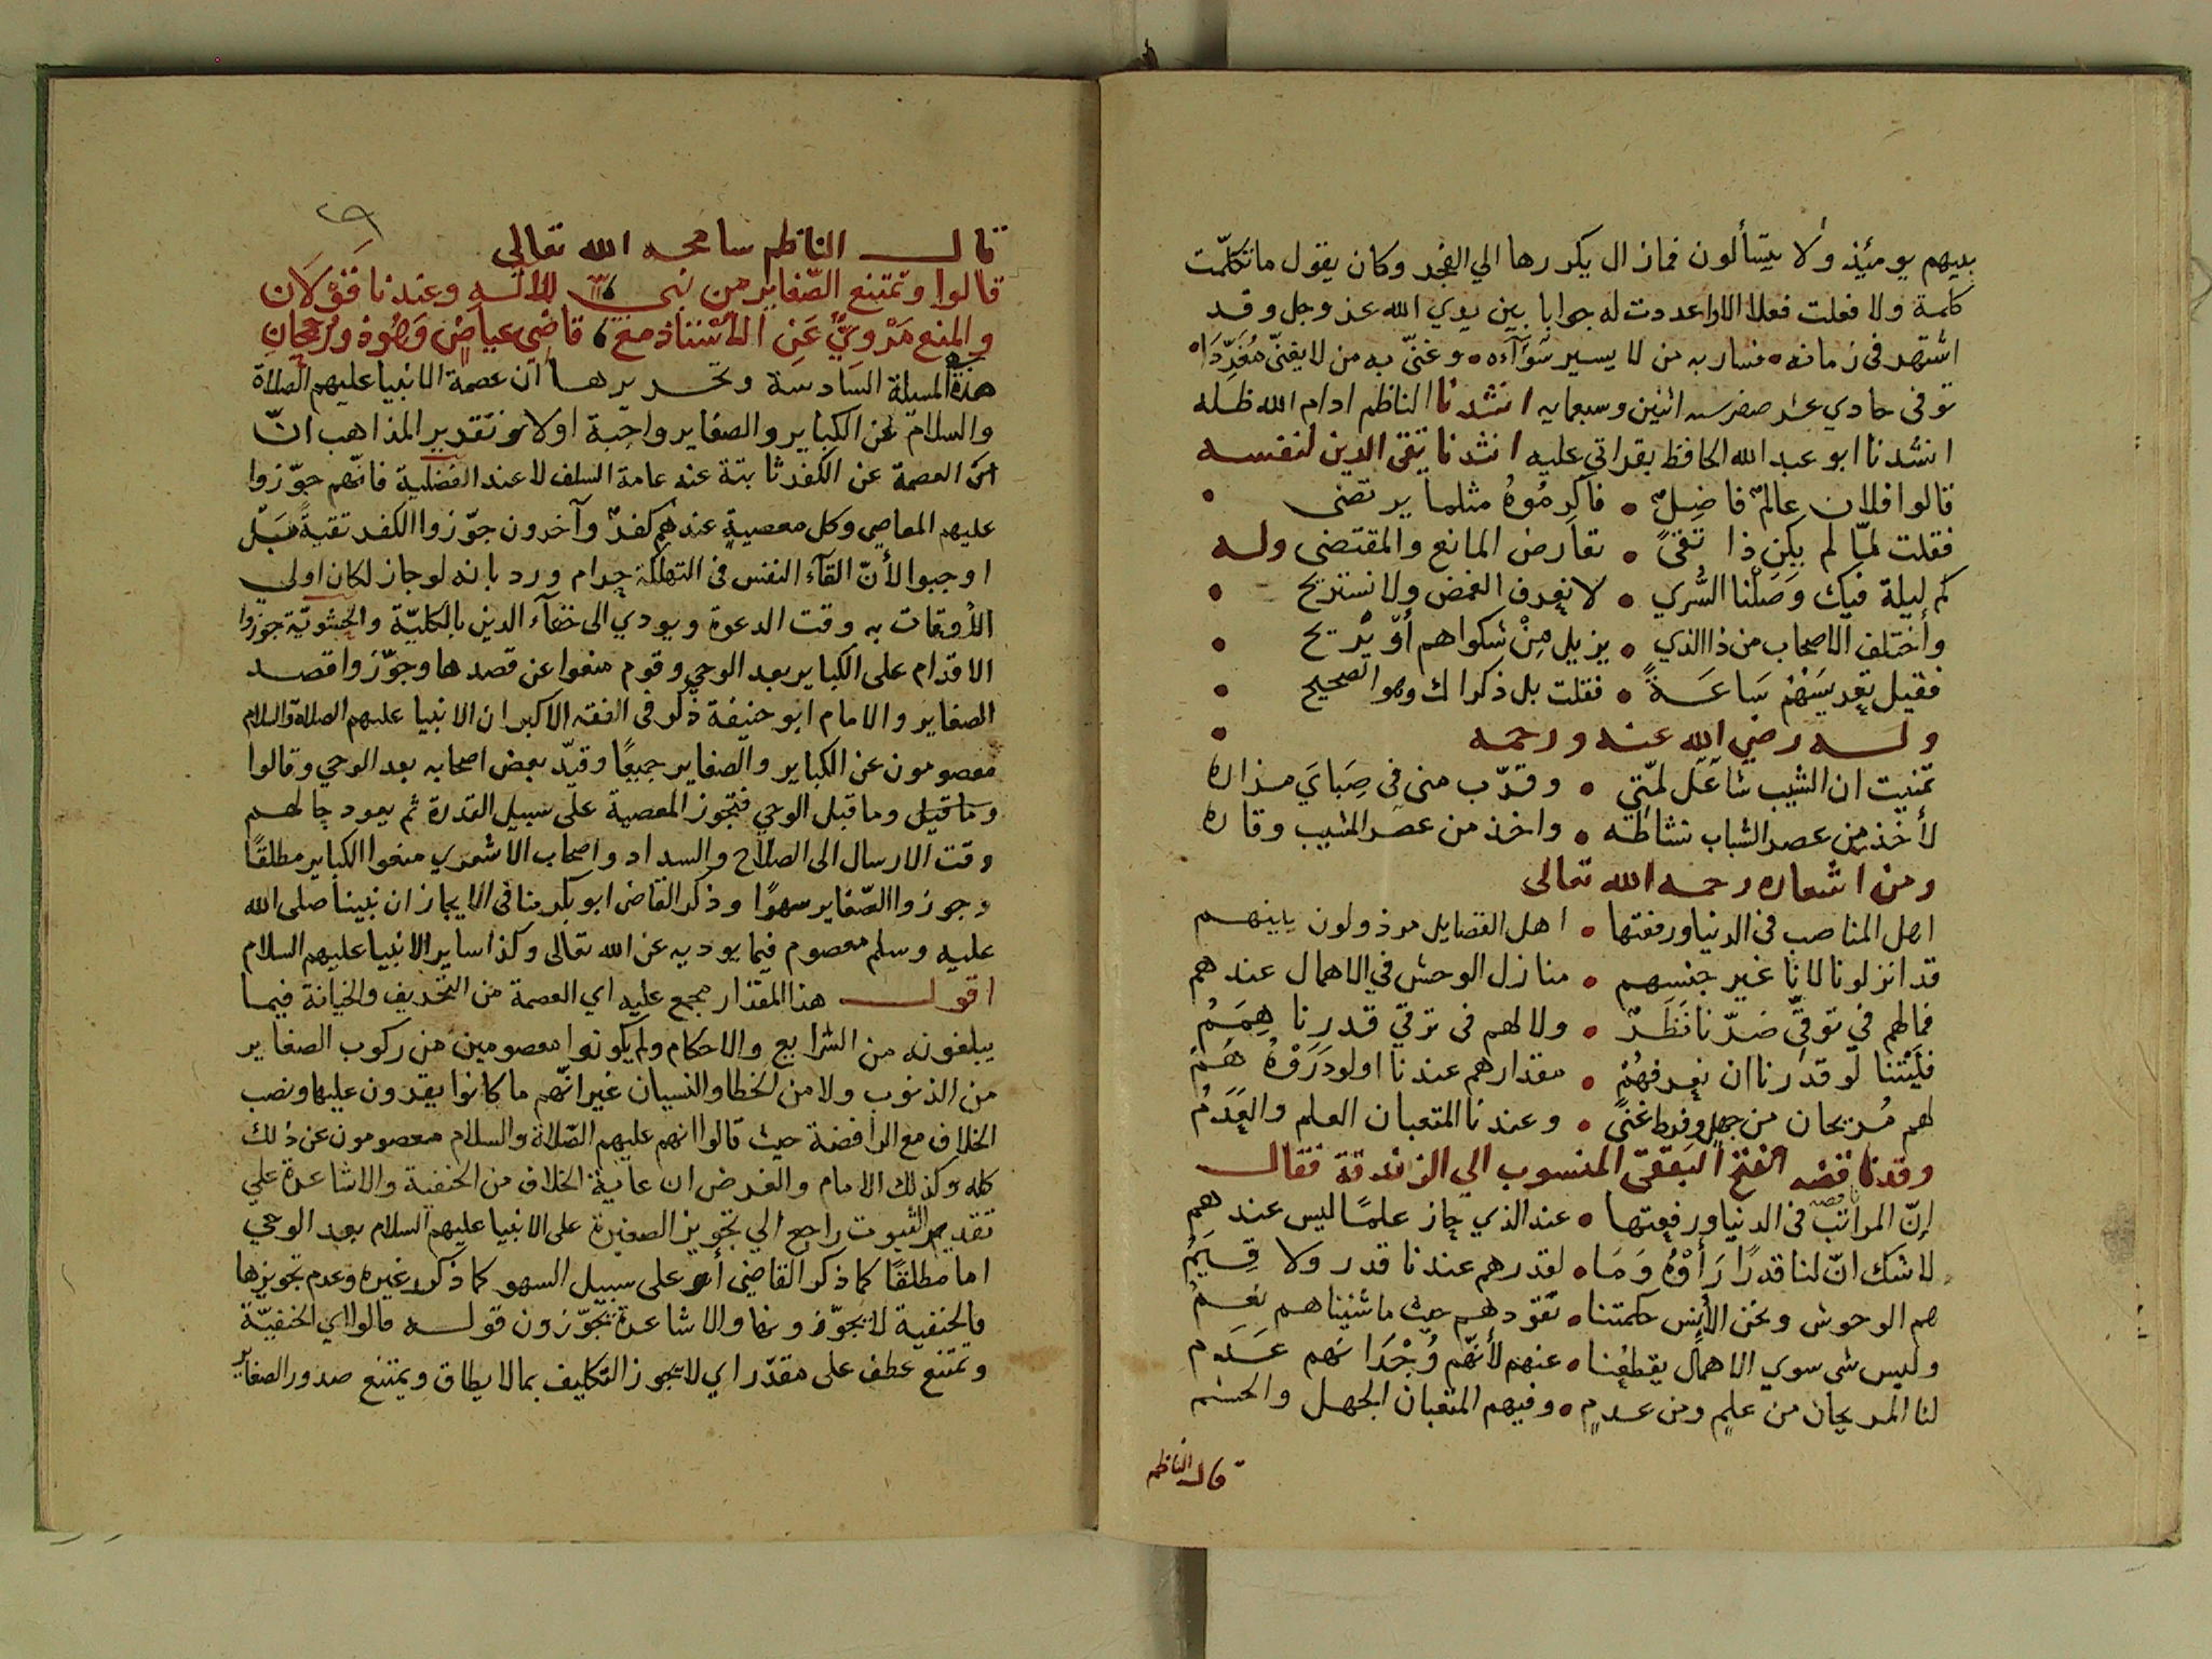 بينهم يومئيذ ولا يتسألون فمازال يكررها الي الفجر وكان يقول ما تكلمت
كلمة ولا فعلت فعلا الا واعددت له جوابا بين يدي الله عز وجل وقد
اشتهر فى زمانه فسار به من لا يسير سواءه وغنّى به من لا يغنّى مغرّدا
توفى حادي عشر صفر سنه اثنين وسبعمايه انشدنا الناظم ادام الله ظله
انشدنا ابو عبد الله الحافظ بقراتي عليه انشدنا تقى الدين لنفسه
قالوا فلان عالمٌ فاضِلٌ • فاكرِمُوهُ مثلما يرتضى
فقلت لمّا لم يكن ذا تقىً • تعارض المانع والمقتضى وله
كم ليلة فيك وَصَلْنا السُّري • لا نعرف الغمض ولا نستريح
وأختلف الاصحاب من ذا الذي • يزيل مِنْ شكواهم أوْ يُريح
فقيل تعريسَهُمْ سَاعَةً • فقلت بل ذكراك وهو الصحيح
وله رضي الله عنه ورحمه
تمنيت ان الشيب شاعَل لمّتي • وقرّب منى في صِبَايَ مزاره
لأخذ من عصر الشباب نشاطه • واخذ من عصر المشيب وقاره
ومن اشعاره رحمه الله تعالى
اهل المناصب فى الدنيا ورفعتها • اهل الفضايل مرذولون بينهم
قد انزلونا لانا غير جنسهم • منازل الوحش في الاهمال عندهم
فما لهم في توقّي ضرّنا نَظَرٌ • ولا لهم فى ترقي قدرنا هِمَمُ
فليتنا لو قدرنا ان نعرفهُمْ • مقدارهم عندنا اولو دَرَوْهُ هُمُ
لهم مُريحان من جهلٍ وفرط غنىً • وعندنا المتعبان العلم والعَدَمُ
وقد ناقضه الفتح البَققى المنسوب الي الزندقة فقال
إنّ المراتب فى الدنيا ورفعتها • عند الذي حاز علمًا ليس عندهم
لا شك انّ لنا قدرًا رَأوْهُ وَمَا • لقدرهم عندنا قدر ولا قِيَمُ
هم الوحوش ونحن الأِنس حكمتنا • تقودهم حيث ما شئنا هم نعمُ
وليس شى سوي الاهمال يقطعُنا • عنهم لأنّهم وُجْدَانهم عَدَم
لنا المريحان من علمٍ ومن عدمٍ • وفيهم المتعبان الجهل والحشم
قال الناظم
قال الناظم سامحه الله تعالى
قالوا وتمتنع الصّغاير من نبي للاله وعندنا قولَان
والمنع مَرْوِيٌّ عَنِ الأُسْتاذ مع قاضي عياضٍ وَهْوَ ذو رُجحانِ
هذه المسيلة السَادسَة وتحريرها ان عصمة الانبيا عليهم الصلاة
والسلام عن الكباير والصغاير واجبة اولا وتقدير المذاهب انّ
انّ العصمة عن الكفر ثابتة عند عامة السلف لا عند الفضلية فانّهم جوّزوا
عليهم المعاصي وكل معصيةٍ عندهم كفرٌ وآخرون جوّزوا الكفر تقيةً بَلْ
اوجبوا لأنّ القآء النفس فى التهلكة حرام ورد بانه لو جاز لكان اولي
الأوقات به وقت الدعوة ويودي الى خفآء الدين بالكليّة والحشويّة جوزوا
الاقدام على الكباير بعد الوحي وقوم منعوا عن قصدها وجوّزوا قصد
الصغاير والامام ابو حنيفة ذكر فى الفقه الاكبر ان الانبيا عليهم الصلاة والسلام
معصومون عن الكباير والصغاير جميعًا وقيّد بعض اصحابه بعد الوحي وقالوا
وما قيل وما قبل الوحي فتجوز المعصية على سبيل القدرة ثم يعود حالهم
وقت الارسال الى الصلاح والسداد واصحاب الاشعري منعوا الكباير مطلقًا
وجوزوا الصّغاير سهوًا وذكر القاضى ابو بكر منا فى الايجاز ان نبينا صلى الله
عليه وسلم معصوم فيما يوديه عن الله تعالى وكذا ساير الانبيا عليهم السلام
اقول هذا المقدار مجمع عليه اي العصمة من التحريف والخيانة فيما
يبلغونه من الشرايع والاحكام ولم يكونوا معصومين من ركوب الصغاير
من الذنوب ولا من الخطا والنسيان غير انّهم ما كانوا يقرون عليها ونصب
الخلاف مع الرافضة حيث قالوا انهم عليهم الصّلاة والسلام معصومون عن ذلك
كله وكذلك الامام والغرض ان غاية الخلاف من الحنفية والاشاعرة علي
تقدير الثبوت راجع الي تجويز الصغيرة على الانبيا عليهم السلام بعد الوحي
اما مطلقًا كما ذكر القاضى أو على سبيل السهو كما ذكر غيره وعدم تجويزها
فالحنفية لا يجوّزونها والاشاعرة يجوّزون قوله قالوا اي الحنفيّة
وتمتنع عطف على مقدّر اي لا يجوز التكليف بما لا يطاق ويمتنع صدور الصغاير